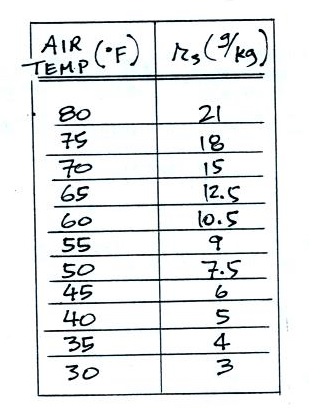 AIR TEMP (°F) rs (g/kg)
80 21
75 18
70 15
65 12.5
60 10.5
55 9
50 7.5
45 6
40 5
35 4
30 3